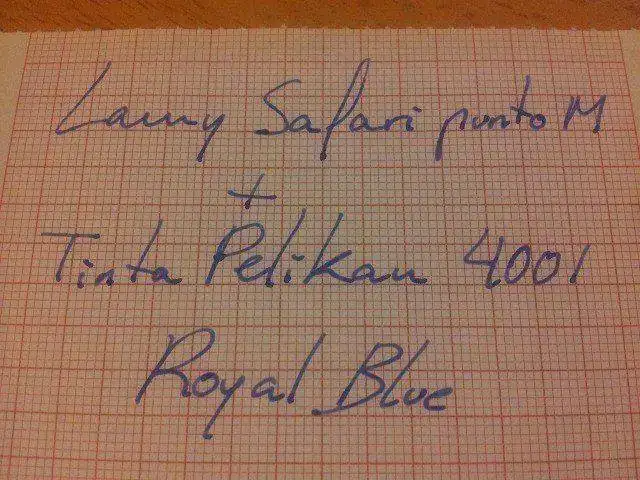 Lamy Safari punto M
+
Tinta Pelikan 4001
Royal Blue